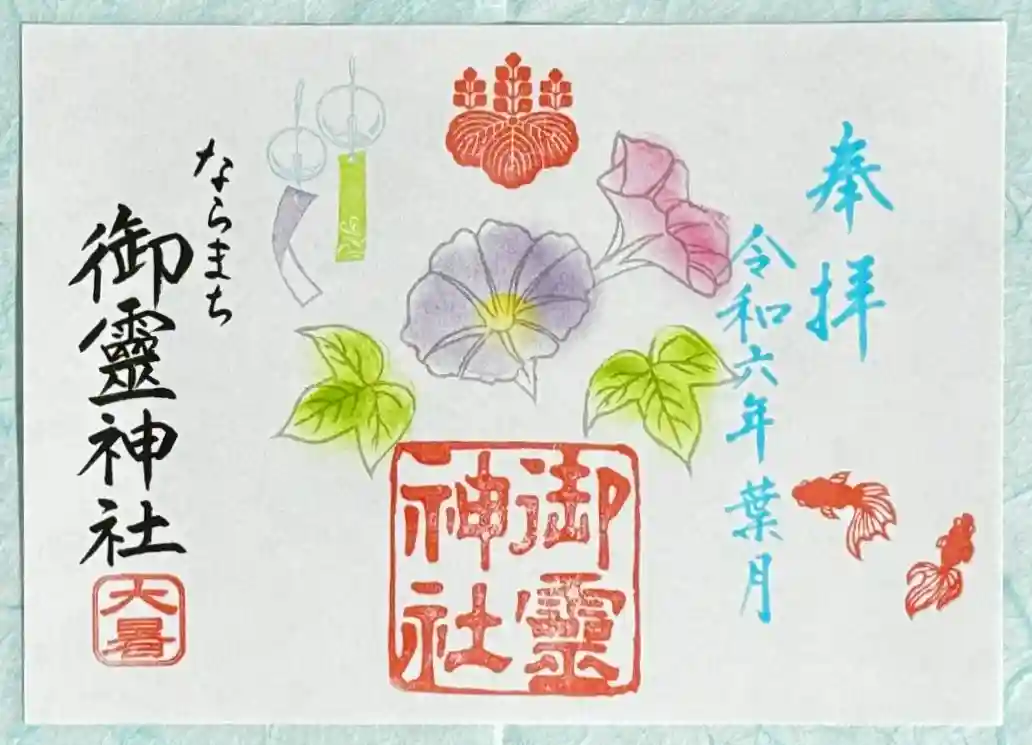 奉拝
令和六年葉月
御靈神社
ならまち
御靈神社
大暑